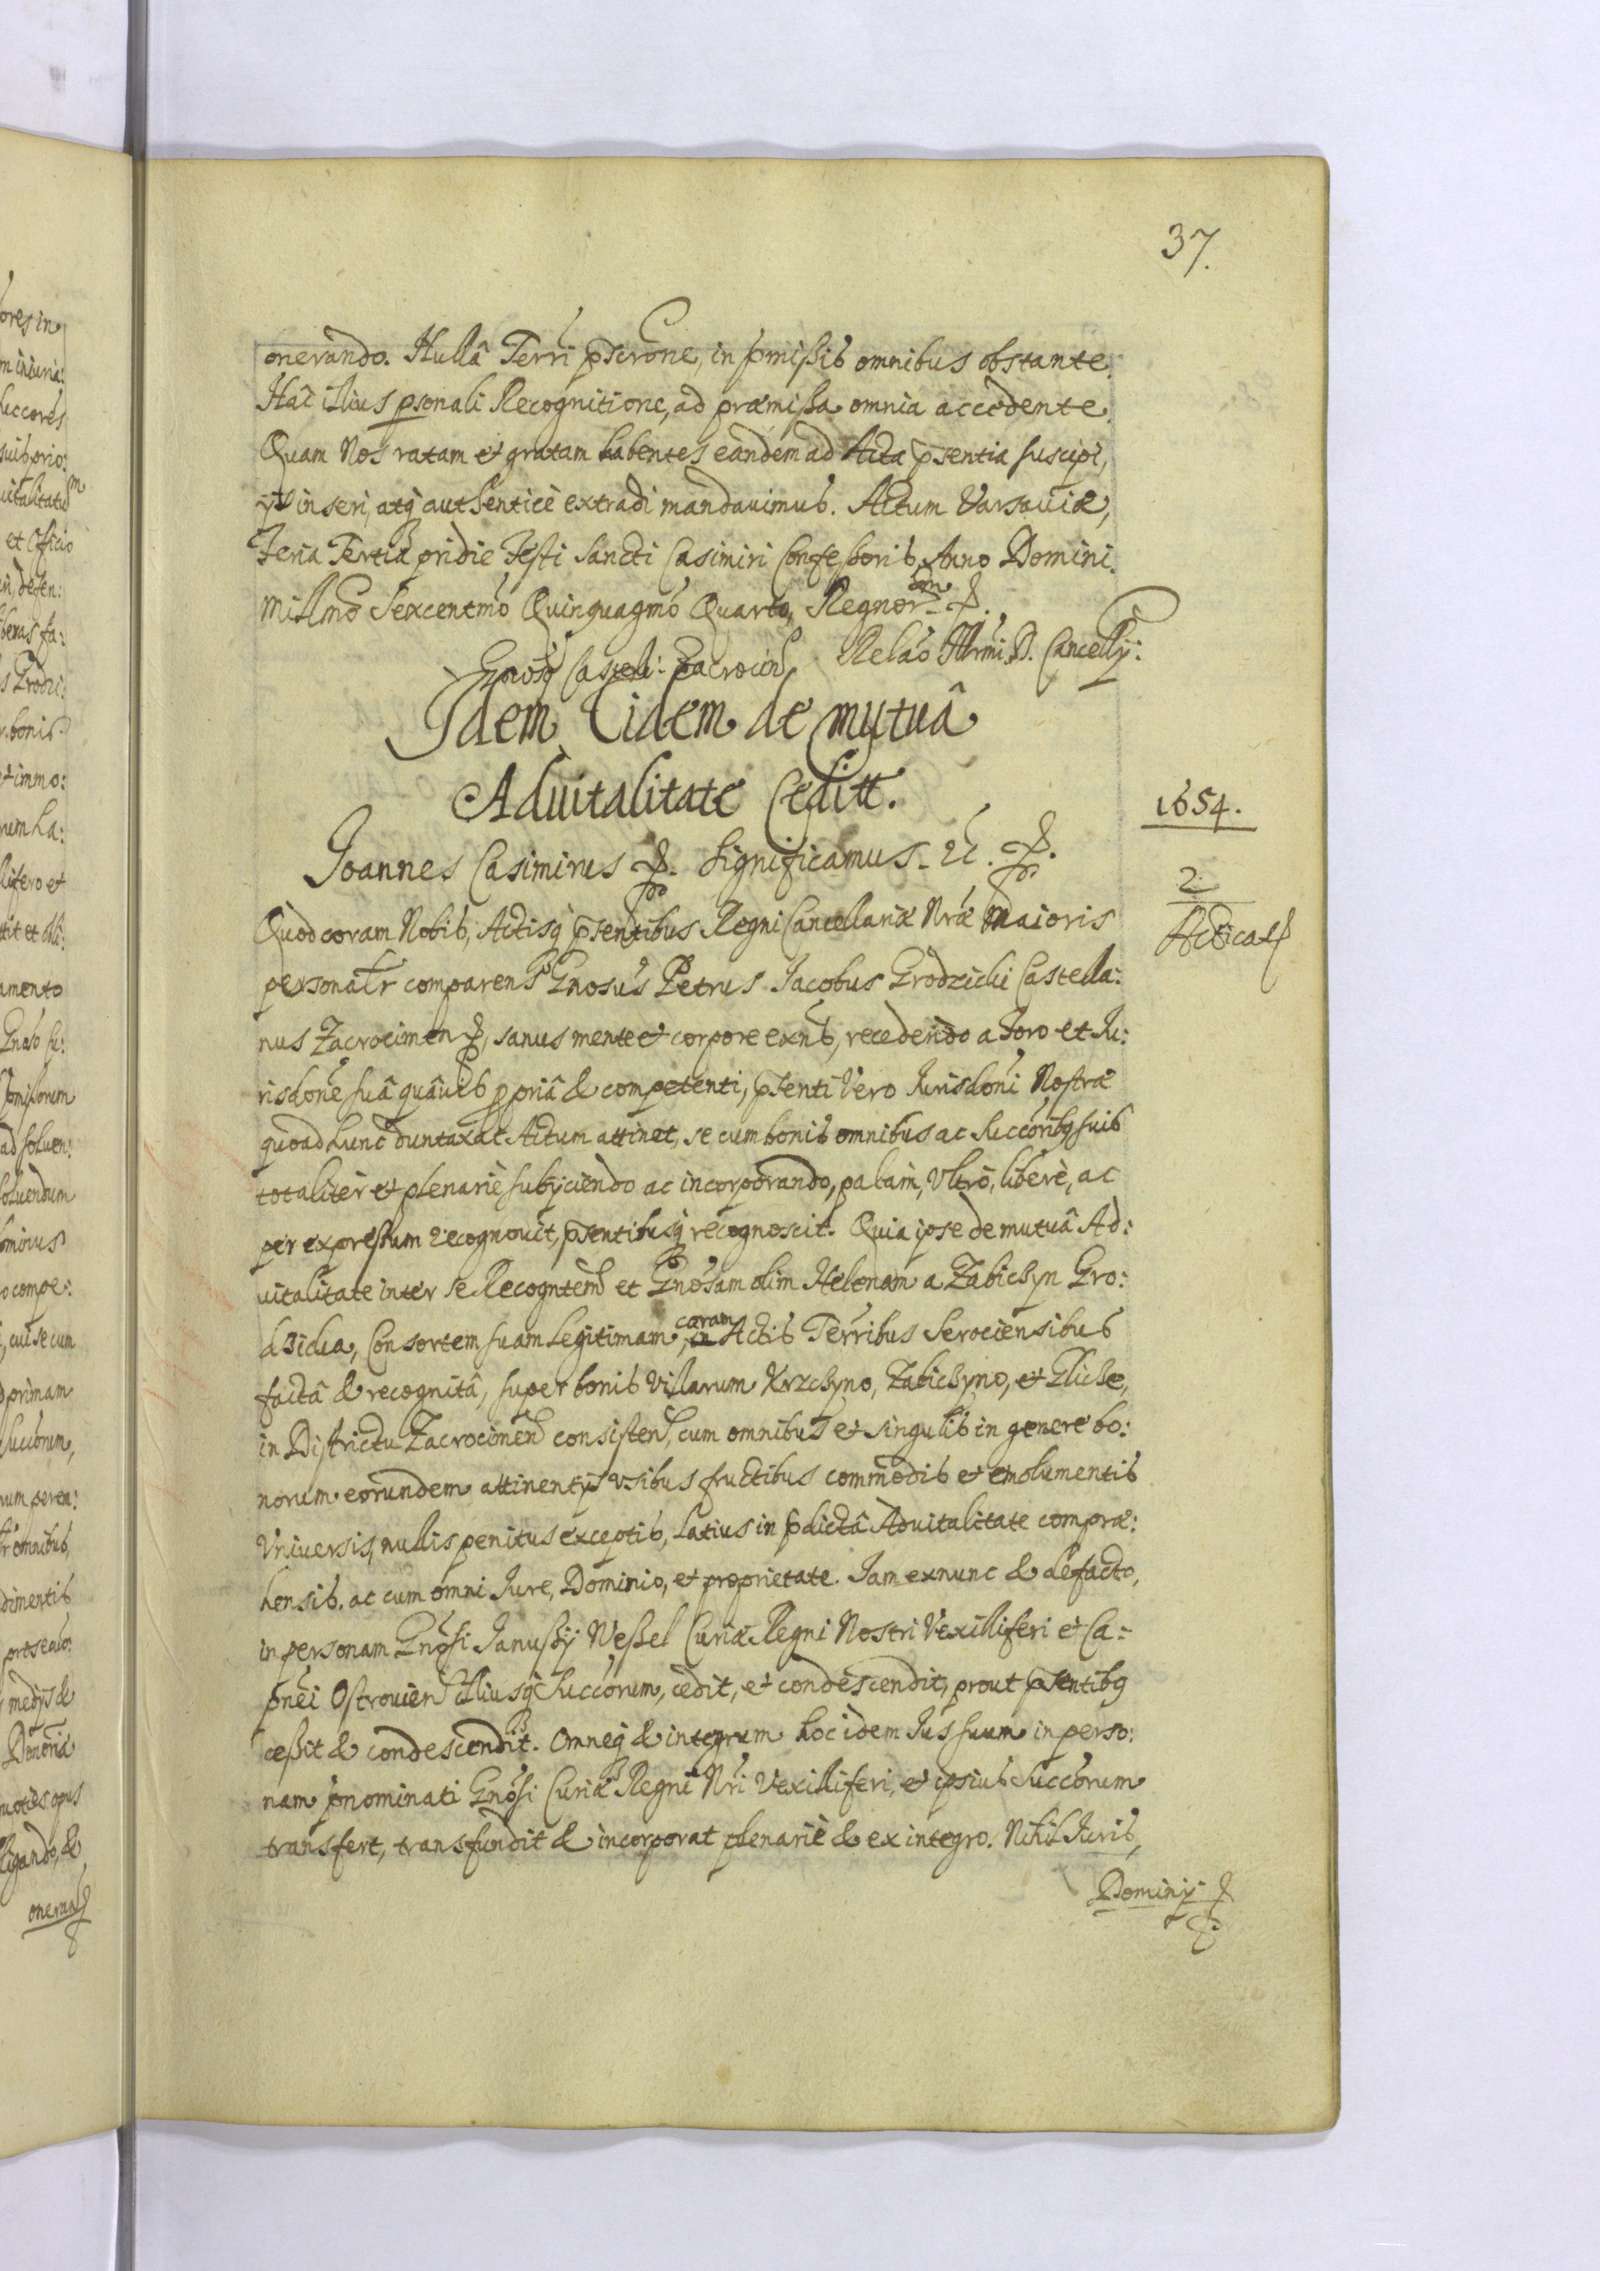 37.
onerando. Nullâ Terri pscrone, in pmißis omnibus obstante.
Hac illius psonali Recognitione, ad præmißa omnia accedente.
Quam Nos ratam et gratam habentes eandem ad Acta psentia suscipi,
ijs inseri, atq authenticè extradi mandavimus. Actum Varsaviæ,
Feria Tertia pridie Festi Sancti Casimiri Confeßoris, Anno Domini.
Millmo Sexcentmo Quinquagmo Quarto, Regnor
Relao Illrmi D. Cancellÿ:
Gnosg Castell: Zacrocim
Idem Eidem de mutuâ
Advitalitate Ceditt.
1654.
Joannes Casimirus Significamus etc.
2.
Quod coram Nobis, Actisq psentibus Regni Cancellariæ Nræ Maioris
personaltr comparens Gnosus Petrus Jacobus Grodzicki Castella:
nus Zacrocimen, sanus mente et corpore exns, recedendo a Foro et Ju:
risdone suâ quâvis ppriâ & competenti, psenti Vero Jurisdoni Nostræ
quoad hunc duntaxat Actum attinet, se cum bonis omnibus ac Succoribq suis
totaliter et plenariè subÿciendo ac incorporando, palàm, Vltrò, liberè, ac
per expreßum recognovit, psentibusq recognoscit. Quia ipse de mutuâ Ad:
vitalitate inter se Recogntem et Gnosam olim Helenam a Zabichyn Gro:
dzicka, Consortem suam Legitimam, coram Actis Terribus Serociensibus
factâ & recognitâ, super bonis Villarum Krzchyno, Zabichyno, et Gliche,
in Districtu Zacrocimen consisten, cum omnibus et singulis in genere bo:
norum eorundem attinentÿs vsibus fructibus commodis et emolumentis
Vniversis, nullis penitus exceptis, Latius in pdictâ Advitalitate compræ:
hensis. ac cum omni Jure, Dominio, et proprietate. Jam exnunc & defacto,
in personam Gnosi Janußÿ Weßel Curiæ Regni Nostri Vexilliferi et Ca:
pnei Ostrovien illiusq Succorum, cedit, et condescendit, prout psentibq
ceßit & condescendit. Omneq & integrum hoc idem Jus suum in perso:
nam pnominati Gnosi Curiæ Regni Nri Vexilliferi, et ipsius Succorum
transfert, transfundit & incorporat plenariè & ex integro. Nihil Juris,
Dominÿ